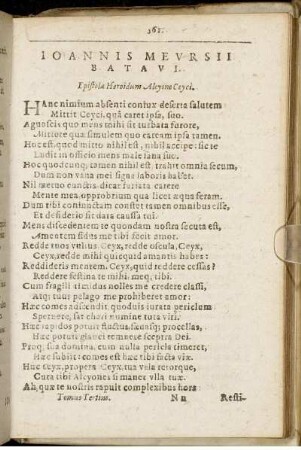 161.
IOANNIS MEVRSII
BATAVI.
Epistola Heroidum Alcyone Ceyci.
HAnc nimium absenti coniux deserta salutem
Mittit Ceyci, quâ caret ipsa, suo.
Agnoscis quo mens mihi sit turbata furore,
Mittere quæ simulem quo caream ipsa tamen.
Hoc est quod mitto nihil est, nihil accipe: sic te
Ludit in officio mens male sana suo.
Hoc quodcunq; tamen nihil est, trahit omnia secum,
Dum non vana mei signa laboris habet.
Nil metuo cuncta dicar furiata carere
Mente mea, opprobrium qua licet æqua feram.
Dum tibi coniunctam constet tamen omnibus esse,
Et desiderio sit data caussa tui.
Mens discedentem te quondam nostra secuta est,
Amentem fidus me tibi fecit amor.
Redde tuos vultus Ceyx, redde oscula, Ceyx,
Ceyx, redde mihi quicquid amantis habes:
Reddideris mentem. Ceyx, quid reddere cessas?
Reddere festina te mihi, meq; tibi.
Cum fragili timidus nolles me credere classi,
Atq; tuus pelago me prohiberet amor:
Hæc comes adscendit quoduis iurata periclum
Spernere, sat chari numine tuta viri.
Hæc rapidos potuit fluctus, sæuasq; procellas,
Hæc potuit glauci temnere sceptra Dei.
Proq; sua domina, cum nulla pericla timeret,
Hæc subiit: comes est hæc tibi facta viæ.
Huc Ceyx, propera Ceyx, tua vela retorque,
Cura tibi Alcyones si manet vlla tuæ.
Ah, quæ te nostris rapuit complexibus hora
Tomus Tertius. Nn Resti-